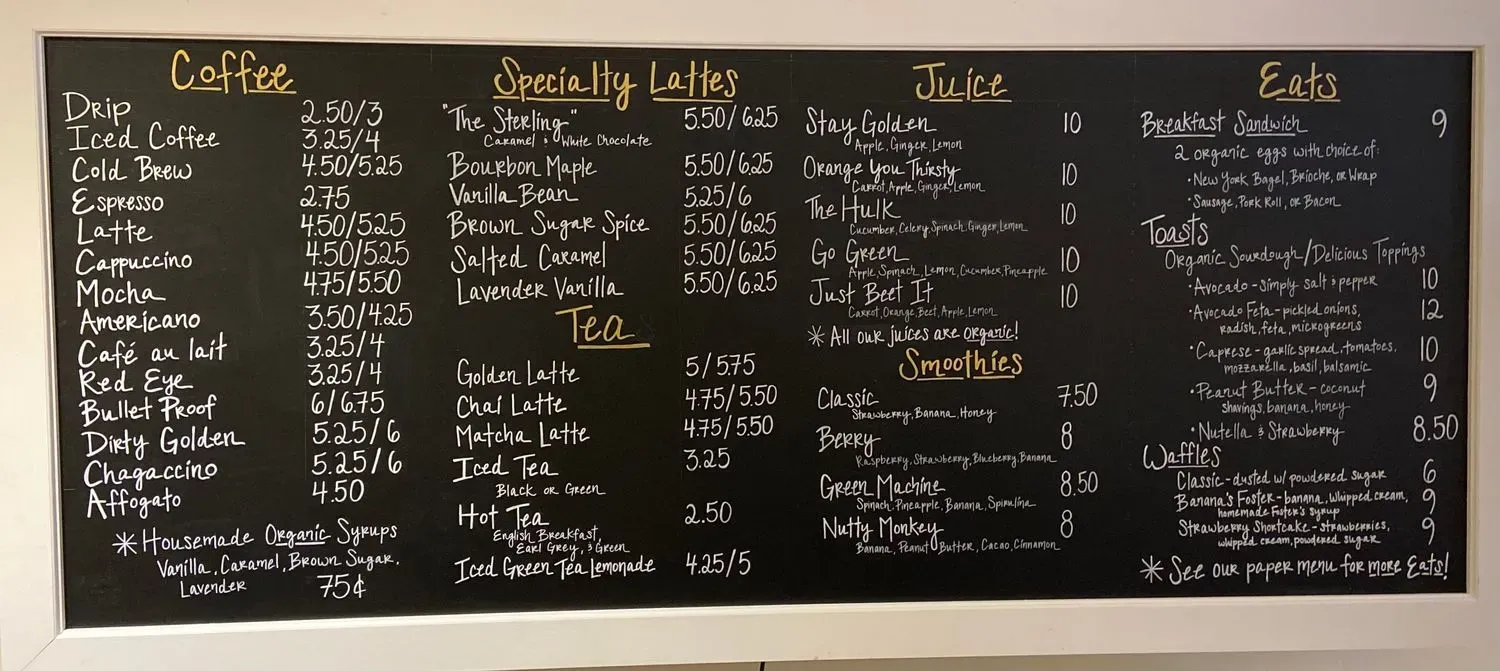 Coffee
Drip 2.50/3
Iced Coffee 3.25/4
Cold Brew 4.50/5.25
Espresso 2.75
Latte 4.50/5.25
Cappuccino 4.50/5.25
Mocha 4.75/5.50
Americano 3.50/4.25
Café au lait 3.25/4
Red Eye 3.25/4
Bullet Proof 6/6.75
Dirty Golden 5.25/6
Chagaccino 5.25/6
Affogato 4.50
* Housemade Organic Syrups
Vanilla, Caramel, Brown Sugar,
Lavender 75¢
Specialty Lattes
"The Sterling" 5.50/6.25
Caramel & White Chocolate
Bourbon Maple 5.50/6.25
Vanilla Bean 5.25/6
Brown Sugar Spice 5.50/6.25
Salted Caramel 5.50/6.25
Lavender Vanilla 5.50/6.25
Tea
Golden Latte 5/5.75
Chai Latte 4.75/5.50
Matcha Latte 4.75/5.50
Iced Tea 3.25
Black or Green
Hot Tea 2.50
English Breakfast,
Earl Grey, & Green
Iced Green Tea Lemonade 4.25/5
Juice
Stay Golden 10
Apple, Ginger, Lemon
Orange You Thirsty 10
Carrot, Apple, Ginger, Lemon
The Hulk 10
Cucumber, Celery, Spinach, Ginger, Lemon
Go Green 10
Apple, Spinach, Lemon, Cucumber, Pineapple
Just Beet It 10
Carrot, Orange, Beet, Apple, Lemon
* All our juices are organic!
Smoothies
Classic 7.50
Strawberry, Banana, Honey
Berry 8
Raspberry, Strawberry, Blueberry, Banana
Green Machine 8.50
Spinach, Pineapple, Banana, Spirulina
Nutty Monkey 8
Banana, Peanut Butter, Cacao, Cinnamon
Eats
Breakfast Sandwich 9
2 organic eggs with choice of:
• New York Bagel, Brioche, or Wrap
• Sausage, Pork Roll, or Bacon
Toasts
Organic Sourdough/Delicious Toppings
• Avocado - simply salt & pepper 10
• Avocado Feta - pickled onions, 12
radish, feta, microgreens
• Caprese - garlic spread, tomatoes, 10
mozzarella, basil, balsamic
• Peanut Butter - coconut 9
shavings, banana, honey
• Nutella & Strawberry 8.50
Waffles
Classic - dusted w/ powdered sugar 6
Banana's Foster - banana, whipped cream, 9
homemade Foster's syrup
Strawberry Shortcake - strawberries, 9
whipped cream, powdered sugar
* See our paper menu for more Eats!